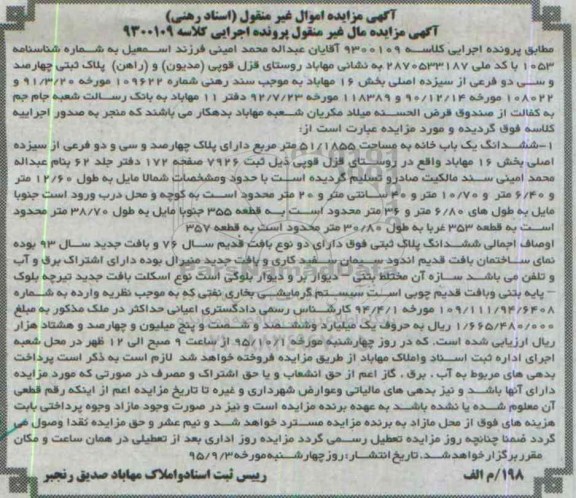 آگهی مزایده اموال غیر منقول (اسناد رهنی)
آگهی مزایده مال غیر منقول پرونده اجرایی کلاسه ۹۳۰۰۱۰۹
مطابق پرونده اجرایی کلاسه ۹۳۰۰۱۰۹ آقایان عبداله محمد امینی فرزند اسمعیل به شماره شناسنامه
۱۰۵۳ با کد ملی ۲۸۷۰۵۳۳۱۸۷ به نشانی مهاباد روستای قزل قوپی (مدیون) و (راهن) پلاک ثبتی چهارصد
و سی دو فرعی از سیزده اصلی بخش ۱۶ مهاباد به موجب سند رهنی شماره ۱۰۹۶۲۲ مورخه ۹۱/۳/۲۰ و
۱۰۸۰۲۲ مورخه ۹۰/۱۲/۱۴ و ۱۱۸۳۸۹ مورخه ۹۲/۷/۲۳ دفتر ۱۱ مهاباد به بانک رسالت شعبه جام جم
به کفالت از صندوق قرض الحسنه میلاد مکریان شعبه مهاباد بدهکار می باشند که منجر به صدور اجراییه
کلاسه فوق گردیده و مورد مزایده عبارت است از:
۱-ششدانگ یک باب خانه به مساحت ۵۱۱/۸۵۵ متر مربع دارای پلاک چهارصد و سی و دو فرعی از سیزده
اصلی بخش ۱۶ مهاباد واقع در روستای قزل قوپی ذیل ثبت ۷۹۲۶ صفحه ۱۷۲ دفتر جلد ۶۲ بنام عبداله
محمد امینی سند مالکیت صادر و تسلیم گردیده است با حدود ومشخصات شمالا مایل به طول ۱۲/۶۰ متر
و ۶/۴۰ متر و ۱۰/۷۰ متر و ۴۰ سانتی متر و ۲۰ متر محدود است به کوچه و محل درب ورود است جنوبا
مایل به طول های ۶/۸۰ متر و ۳۶ متر محدود است به قطعه ۳۵۵ جنوبا مایل به طول ۳۸/۷۰ متر محدود
است به قطعه ۳۵۳ غربا به طول ۳۰/۸۰ متر محدود است به قطعه ۳۵۷
اوصاف اجمالی ششدانگ پلاک ثبتی فوق دارای دو نوع بافت قدیم سال ۷۶ و بافت جدید سال ۹۳ بوده
نمای ساختمان بافت قدیم اندود سیمان سفید کاری و بافت جدید مینرال بوده دارای اشتراک برق و آب
و تلفن می باشد سازه آن مختلط بتنی – دیوار بر و دیوار بلوکی است نوع اسکلت بافت جدید تیرچه بلوک
– پایه بتنی وبافت قدیم چوبی است سیستم گرمایشی بخاری نفتی که به موجب نظریه وارده به شماره
۱۰۹/۱۱۱/۹۴/۶۴۰۸ مورخه ۹۴/۴/۱ کارشناس رسمی دادگستری اعیانی حداکثر در ملک مذکور به مبلغ
۱/۶۶۵/۴۸۰/۰۰۰ ریال به حروف یک میلیارد وششصد و شصت و پنج میلیون و چهارصد و هشتاد هزار
ریال ارزیابی شده است. که در روز چهارشنبه مورخه ۹۵/۱۰/۱ از ساعت ۹ صبح الی ۱۲ ظهر در محل شعبه
اجرای اداره ثبت اسناد واملاک مهاباد از طریق مزایده فروخته خواهد شد لازم است به ذکر است پرداخت
بدهی های مربوط به آب ، برق ، گاز اعم از حق انشعاب و یا حق اشتراک و مصرف در صورتی که مورد مزایده
دارای آنها باشد و نیز بدهی های مالیاتی وعوارض شهرداری و غیره تا تاریخ مزایده اعم از اینکه رقم قطعی
آن معلوم شده یا نشده باشد به عهده برنده مزایده است و نیز در صورت وجود مازاد وجوه پرداختی بابت
هزینه های فوق از محل مازاد به برنده مزایده مسترد خواهد شد و نیم عشر و حق مزایده نقدا وصول می
گردد ضمنا چنانچه روز مزایده تعطیل رسمی گردد مزایده روز اداری بعد از تعطیلی در همان ساعت و مکان
مقرر برگزار خواهد شد. تاریخ انتشار: روز چهارشنبه مورخه ۹۵/۹/۳
۱۹۸/م الف رییس ثبت اسناد واملاک مهاباد صدیق رنجبر